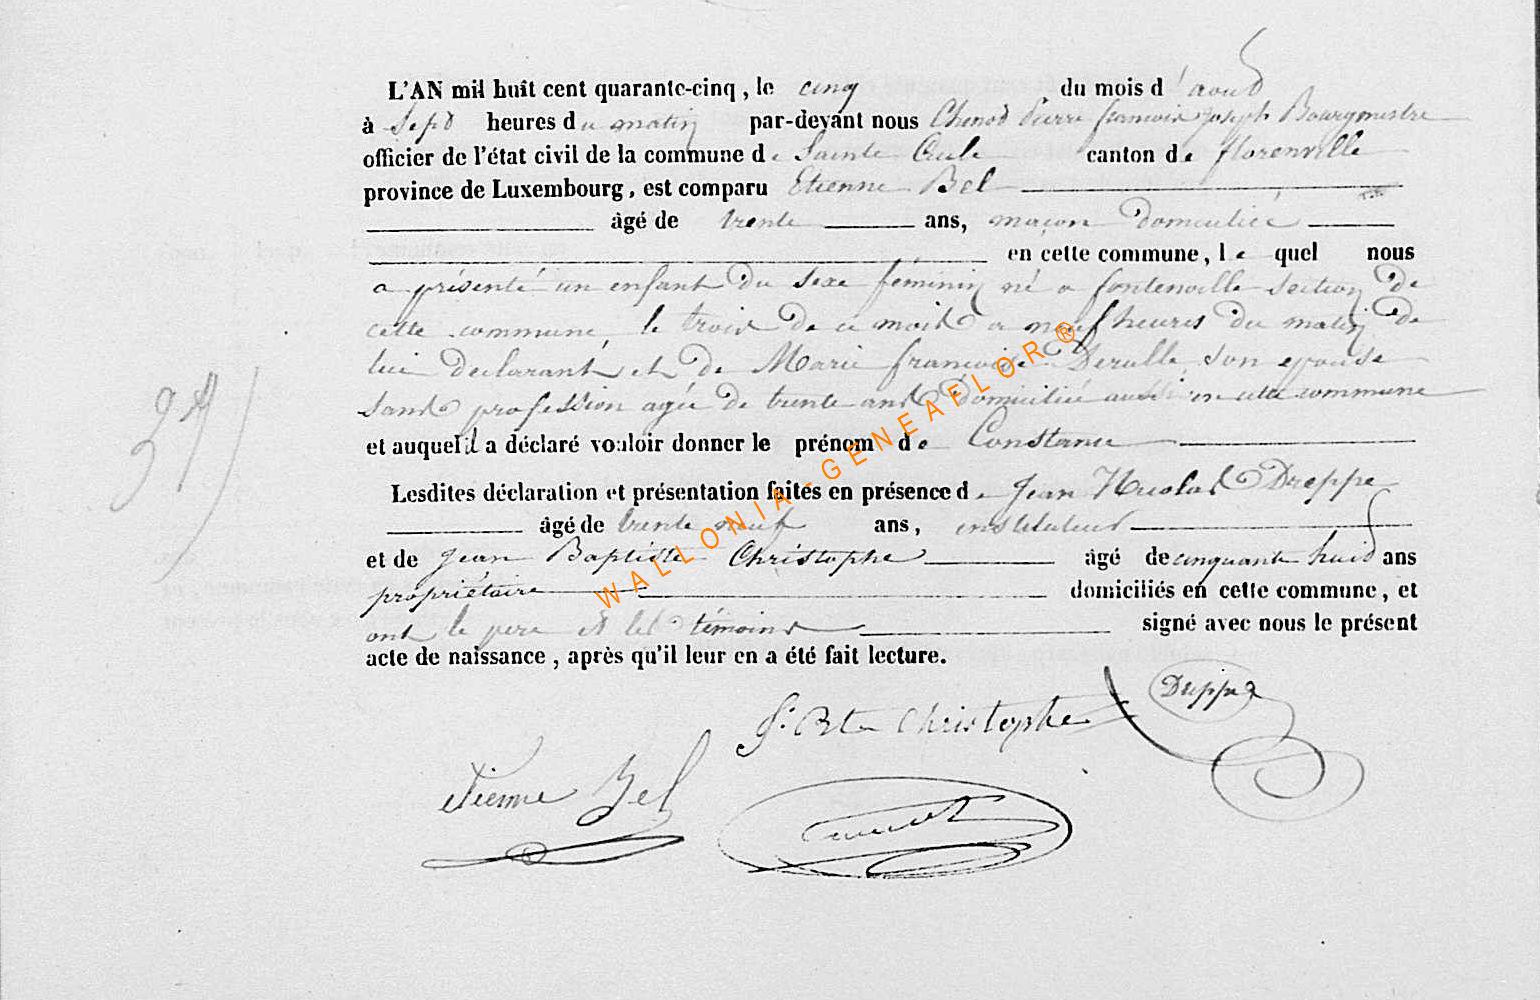 L'AN mil huit cent quarante-cinq, le cinq du mois d'aoud
à Sept heures du matin par-devant nous Chenot Pierre francois Joseph Bourgmestre
officier de l'état civil de la commune de Sainte Cecile canton de florenville
province de Luxembourg, est comparu Etienne Bel
âgé de trente ans, maçon domicilié
en cette commune, le quel nous
a présenté un enfant du sexe féminin né a fontenoille section de
cette commune, le trois de ce mois a neuf heures du matin de
lui declarant et de Marie francoise Derulle son epouse
sans profession agée de trente ans domicilié aussi en cette commune
et auquel il a déclaré vouloir donner le prénom de Constance
Lesdites déclaration et présentation faites en présence de Jean Nicolas Dreppe
âgé de trente neuf ans, instituteur
et de Jean Baptiste Christophe âgé de cinquante huid ans
propriétaire domiciliés en cette commune, et
ont le pere et les témoins signé avec nous le présent
acte de naissance, après qu'il leur en a été fait lecture.
Dreppe
J. Bte Christophe
etienne Bel
WALLONIA-GENEAELOR®